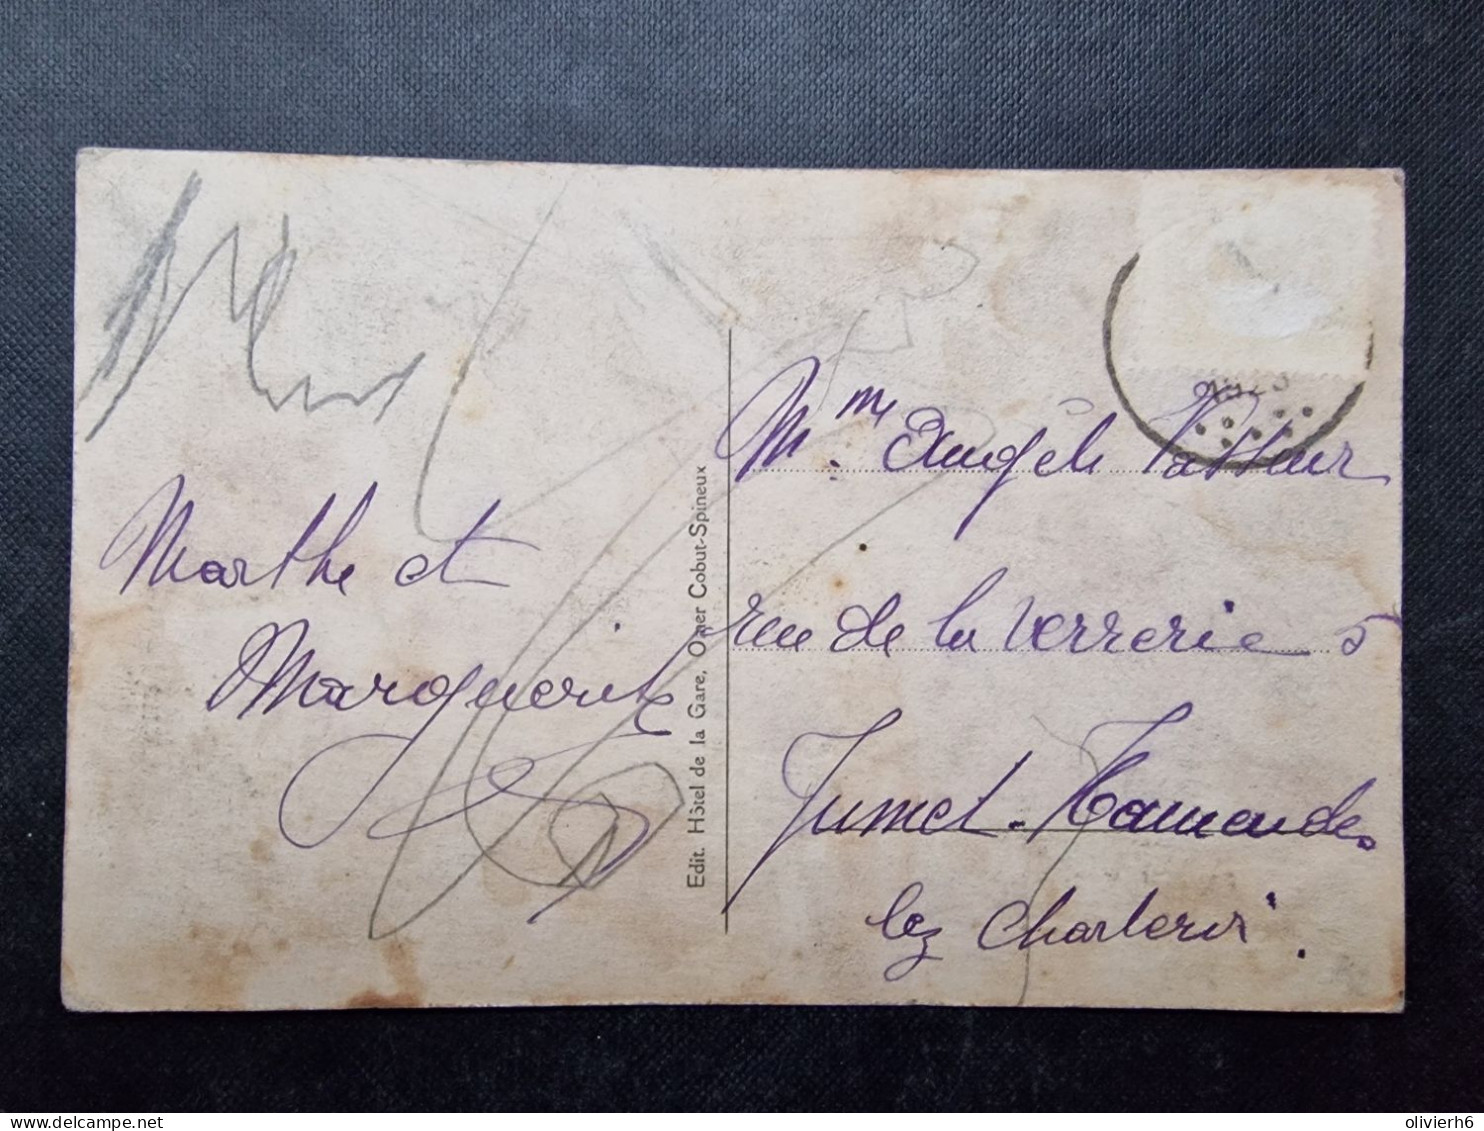 Marthe et
Marguerite
Edit. Hôtel de la Gare, Omer Cobut-Spineux
1923
Mme. Angèle
rue de la Verrerie 5
Jumet-Hamendes
lez Charleroi.
olivierh6